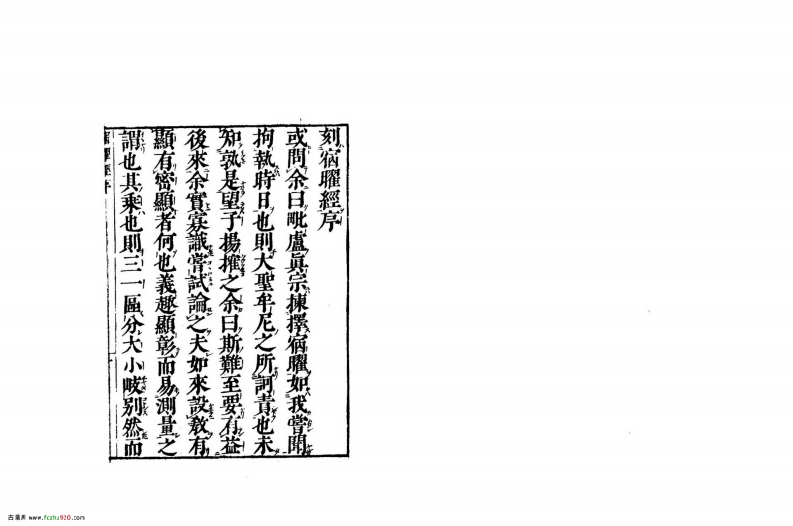 刻宿曜經序
或問余曰毗盧眞宗揀擇宿曜如我嘗聞
拘執時日也則大聖牟尼之所訶責也未
知孰是望子揚搉之余曰斯難至要有益
後來余實寡識嘗試論之夫如來設敎有
顯有密顯者何也義趣顯彰而易測量之
謂也其乘也則三一區分大小岐別然而
www.fczhu920.com